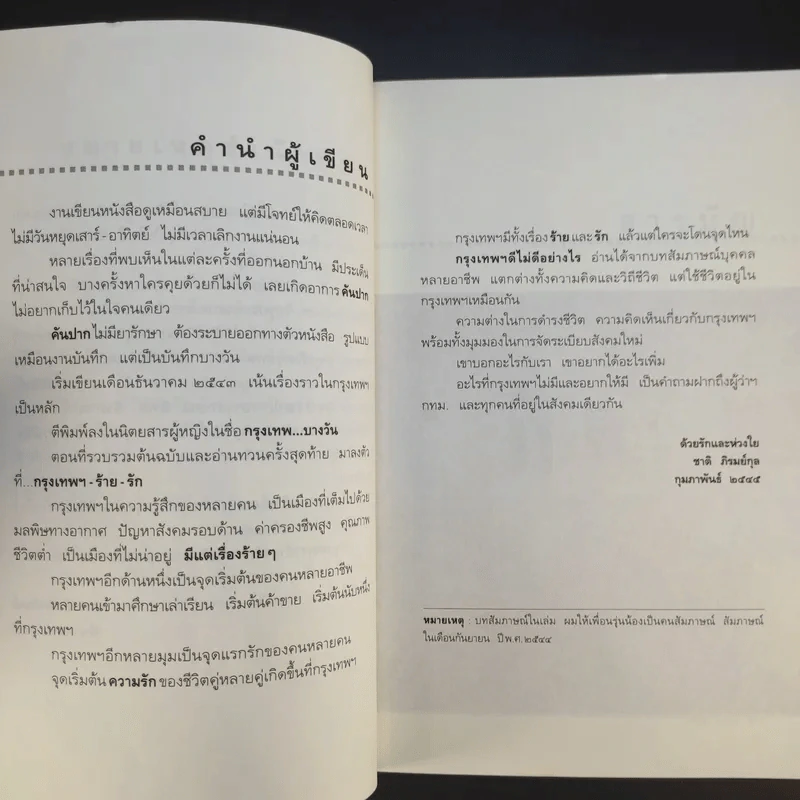 คำนำผู้เขียน
งานเขียนหนังสือดูเหมือนสบาย แต่มีโจทย์ให้คิดตลอดเวลา
ไม่มีวันหยุดเสาร์-อาทิตย์ ไม่มีเวลาเลิกงานแน่นอน
หลายเรื่องที่พบเห็นในแต่ละครั้งที่ออกนอกบ้าน มีประเด็น
ที่น่าสนใจ บางครั้งหาใครคุยด้วยก็ไม่ได้ เลยเกิดอาการ คันปาก
ไม่อยากเก็บไว้ในใจคนเดียว
คันปาก ไม่มียารักษา ต้องระบายออกทางตัวหนังสือ รูปแบบ
เหมือนงานบันทึก แต่เป็นบันทึกบางวัน
เริ่มเขียนเดือนธันวาคม ๒๕๔๓ เน้นเรื่องราวในกรุงเทพฯ
เป็นหลัก
ตีพิมพ์ลงในนิตยสารผู้หญิงในชื่อ กรุงเทพ...บางวัน
ตอนที่รวบรวมต้นฉบับและอ่านทวนครั้งสุดท้าย มาลงตัว
ที่...กรุงเทพฯ - ร้าย - รัก
กรุงเทพฯในความรู้สึกของหลายคน เป็นเมืองที่เต็มไปด้วย
มลพิษทางอากาศ ปัญหาสังคมรอบด้าน ค่าครองชีพสูง คุณภาพ
ชีวิตต่ำ เป็นเมืองที่ไม่น่าอยู่ มีแต่เรื่องร้าย ๆ
กรุงเทพฯอีกด้านหนึ่งเป็นจุดเริ่มต้นของคนหลายอาชีพ
หลายคนเข้ามาศึกษาเล่าเรียน เริ่มต้นค้าขาย เริ่มต้นนับหนึ่ง
ที่กรุงเทพฯ
กรุงเทพฯอีกหลายมุมเป็นจุดแรกรักของคนหลายคน
จุดเริ่มต้น ความรัก ของชีวิตคู่หลายคู่เกิดขึ้นที่กรุงเทพฯ
กรุงเทพฯมีทั้งเรื่อง ร้าย และ รัก แล้วแต่ใครจะโดนจุดไหน
กรุงเทพฯดีไม่ดีอย่างไร อ่านได้จากบทสัมภาษณ์บุคคล
หลายอาชีพ แตกต่างทั้งความคิดและวิถีชีวิต แต่ใช้ชีวิตอยู่ใน
กรุงเทพฯเหมือนกัน
ความต่างในการดำรงชีวิต ความคิดเห็นเกี่ยวกับกรุงเทพฯ
พร้อมทั้งมุมมองในการจัดระเบียบสังคมใหม่
เขาบอกอะไรกับเรา เขาอยากได้อะไรเพิ่ม
อะไรที่กรุงเทพฯไม่มีและอยากให้มี เป็นคำถามฝากถึงผู้ว่าฯ
กทม. และทุกคนที่อยู่ในสังคมเดียวกัน
ด้วยรักและห่วงใย
ชาติ ภิรมย์กุล
กุมภาพันธ์ ๒๕๔๕
หมายเหตุ : บทสัมภาษณ์ในเล่ม ผมให้เพื่อนรุ่นน้องเป็นคนสัมภาษณ์ สัมภาษณ์
ในเดือนกันยายน ปีพ.ศ.๒๕๔๔